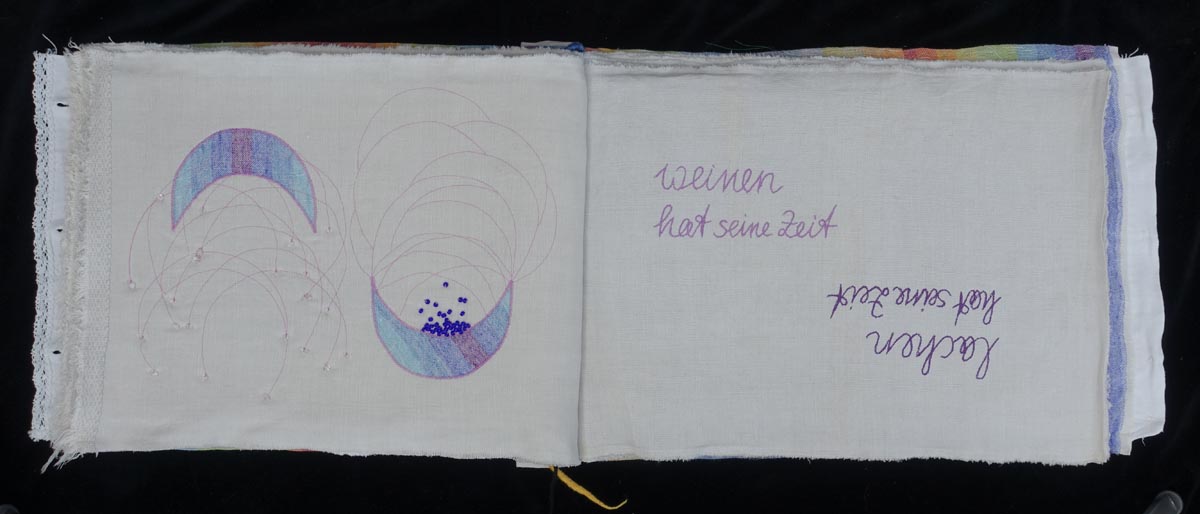 weinen
hat seine Zeit
lachen
hat seine Zeit